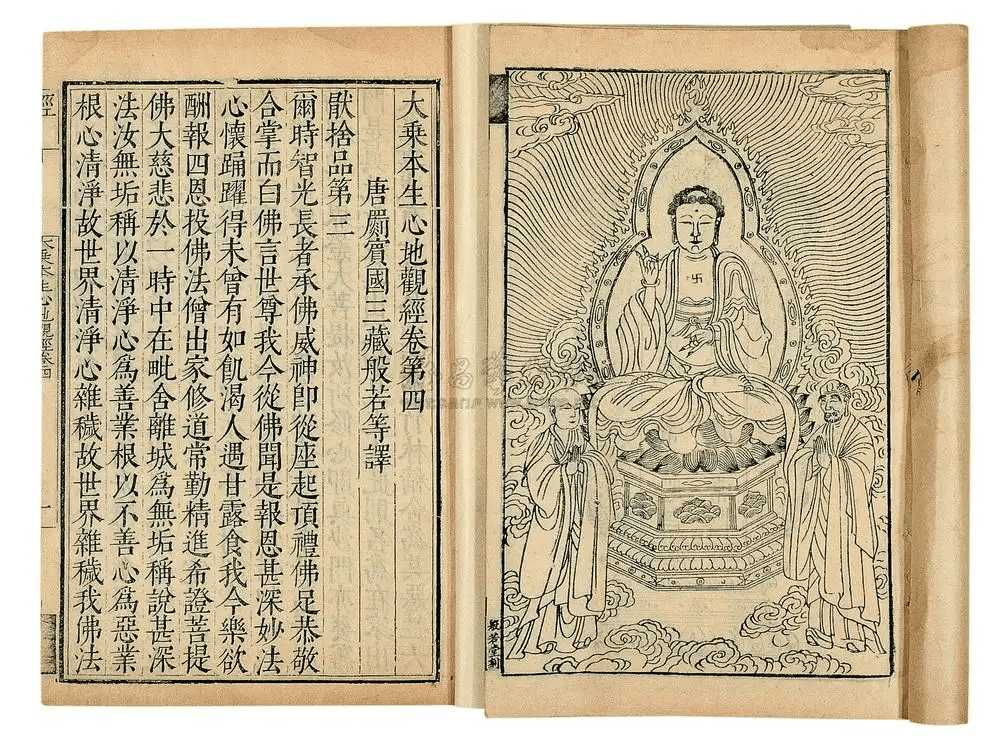 般若堂刻
大乘本生心地觀經卷第四
唐罽賓國三藏般若等譯
猒捨品第三
爾時智光長者承佛威神卽從座起頂禮佛足恭敬
合掌而白佛言世尊我今從佛聞是報恩甚深妙法
心懷踊躍得未曾有如飢渴人遇甘露食我今樂欲
酬報四恩投佛法僧出家修道常勤精進希證菩提
佛大慈悲於一時中在毗舍離城爲無垢稱說甚深
法汝無垢稱以清淨心爲善業根以不善心爲惡業
根心清淨故世界清淨心雜穢故世界雜穢我佛法